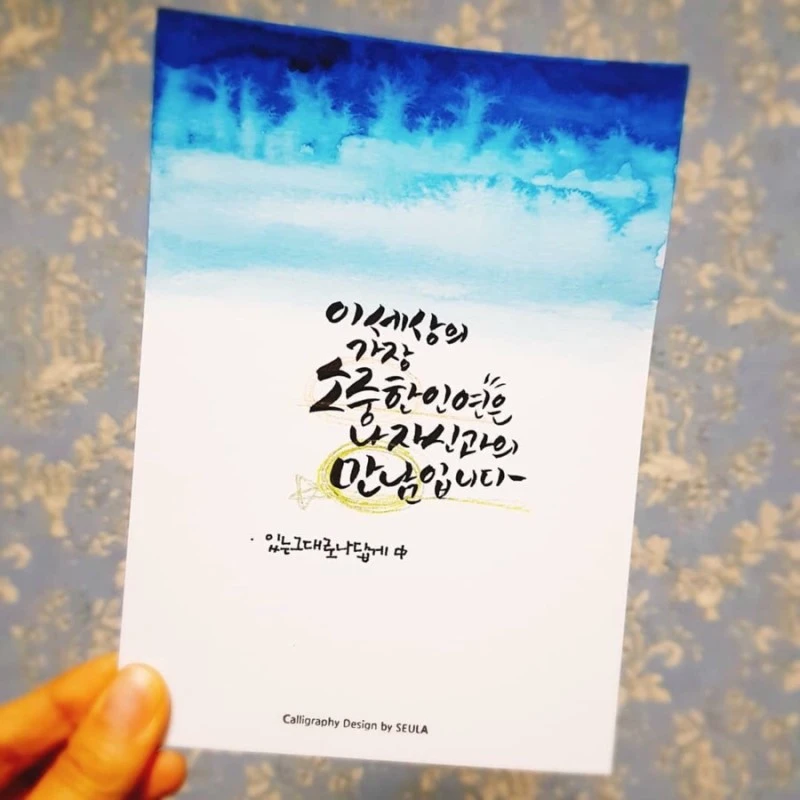 이 세상의
가장
소중한 인연은
나 자신과의
만남입니다~
· 있는 그대로 나답게 中
Calligraphy Design by SEULA